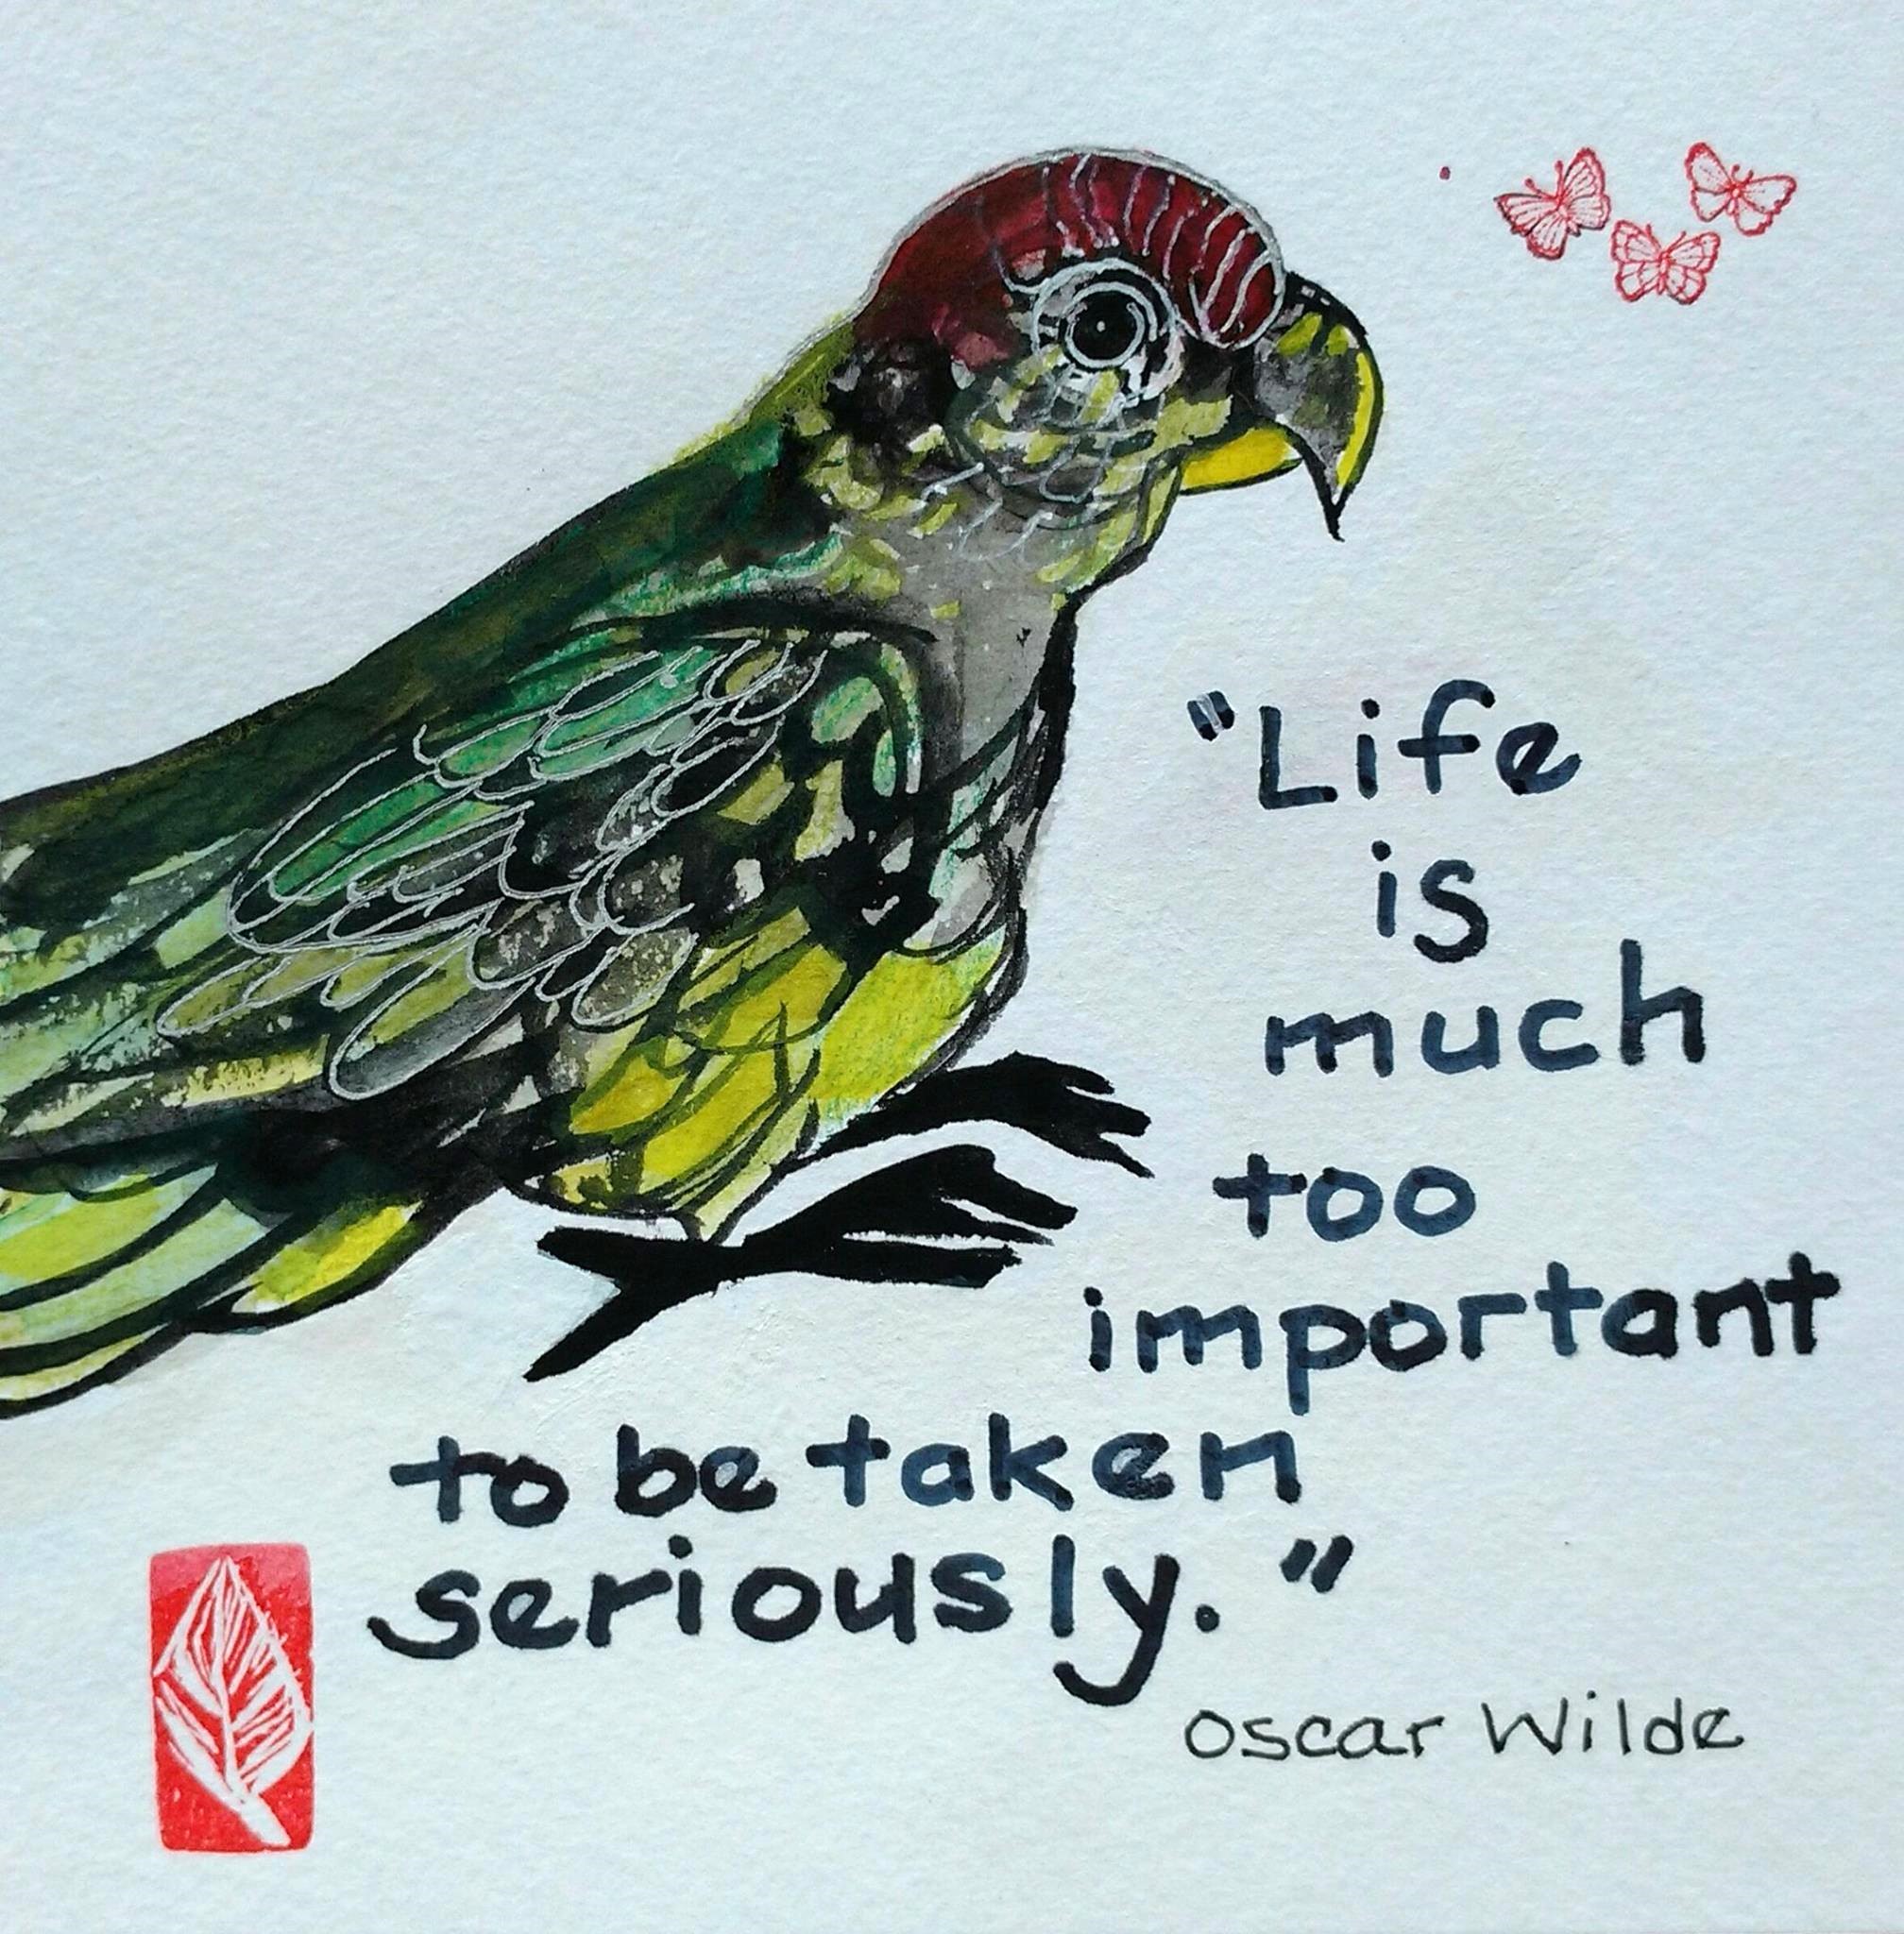 "Life
is
much
too
important
to be taken
seriously."
Oscar Wilde